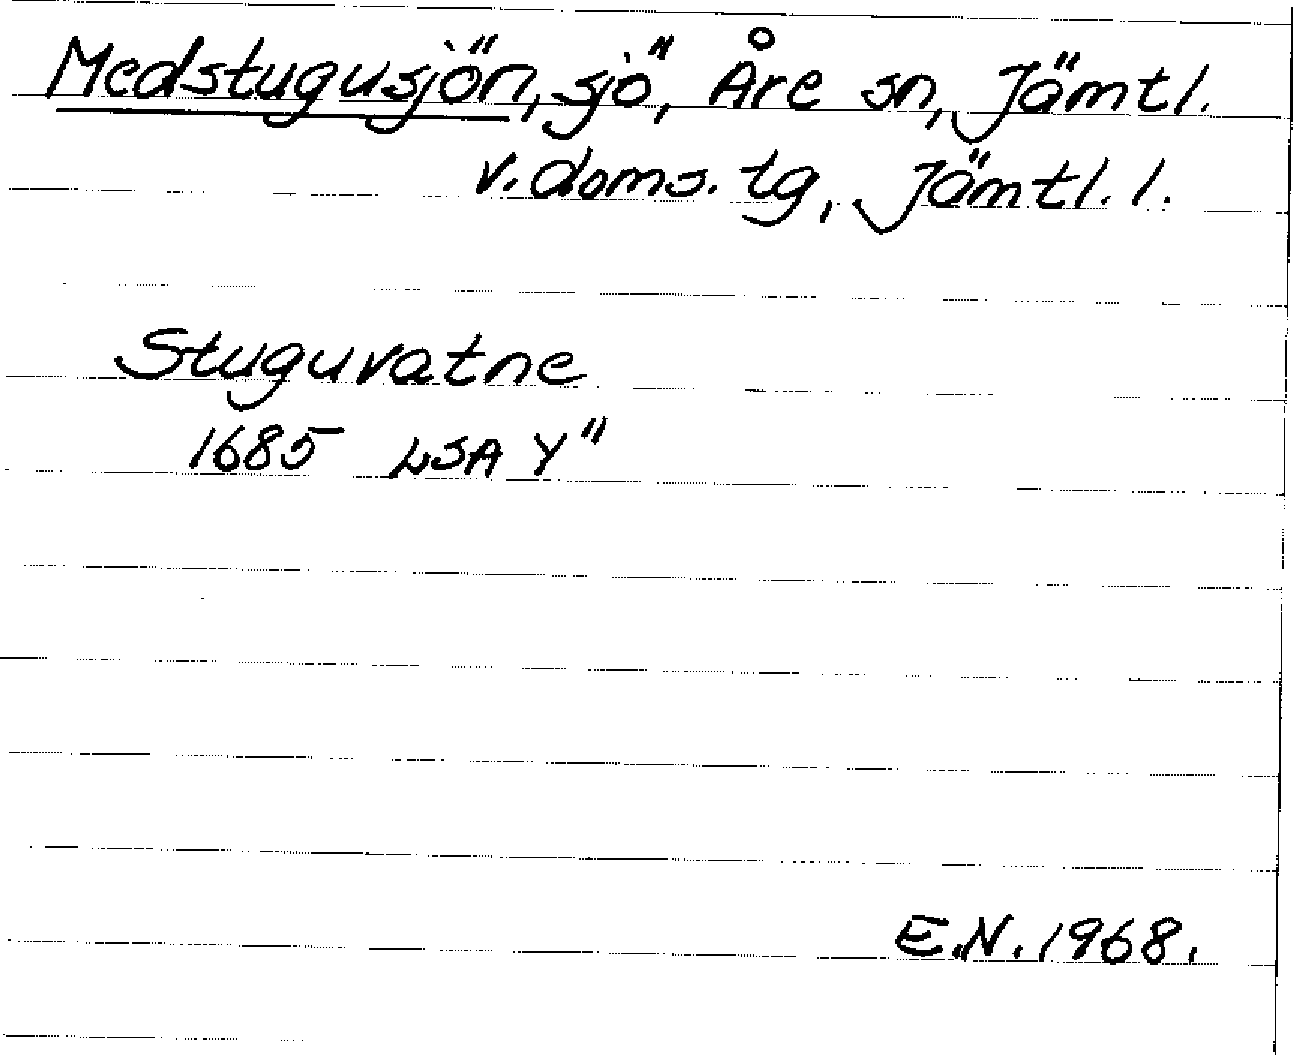 Medstugusjön, sjö, Åre sn, Jämtl.
v. doms. tg, Jämtl. l.
Stuguvatne
1685 LSA Y"
E.N. 1968.